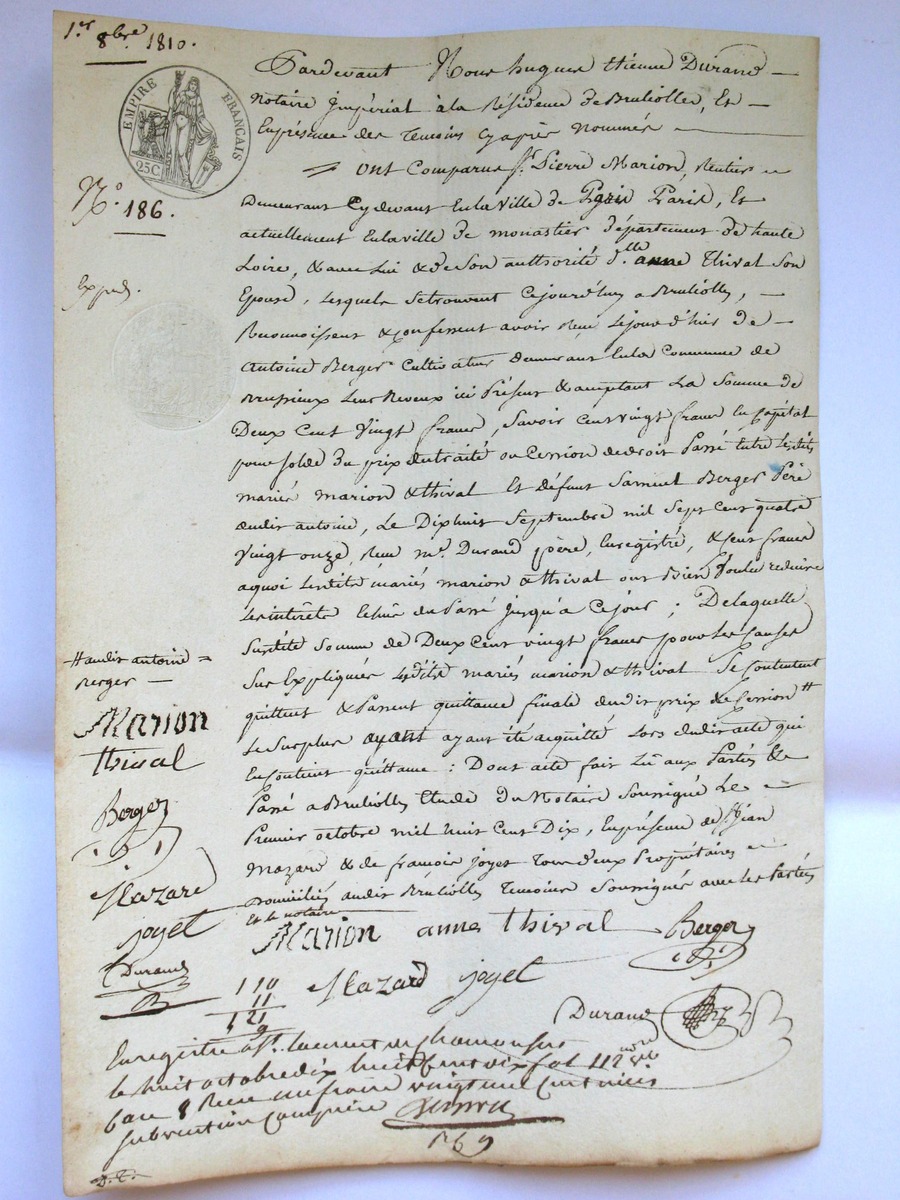 1.er 8bre 1810.
EMPIRE FRANÇAIS
25C
N.o 186.
Exped.
Pardevant Nous hugues Etienne Durand
Notaire Impérial à la Résidence de Brullolles, Et
En présence des Temoins Cy après Nommés
ont Comparus Sr. Pierre Marion, Rentier
Demeurant Cydevant En la Ville de Paris, Et
actuellement En la ville de monastier département de haute
Loire, & avec Lui & de Son authorité d.lle anne Thival Son
Epouse, Lesquels Se trouvent Cejourd'huy a Brullolles,
Reconnoissent & confessent avoir Reçu Le jour d'hier de
Antoine Berger Cultivateur demeurant En la Commune de
Brussieux Leur Neveux ici Présent & acceptant La Somme de
Deux Cent Vingt francs, Savoir Cent vingt francs En Capital
pour Solde du prix du traité ou Cession de droit Passé Entre Lesdits
mariés marion & thival Et défunt Samuel Berger Père
dudit antoine, Le Dixhuit Septembre mil Sept Cent quatre
Vingt onze, Reçu m.e Durand père, Enregistré, & Cent francs
aquoi Lesdits mariés marion & thival ont Bien Voulu reduire
Les intérêts du Passé jusqu'à Ce jour ; De laquelle
Susdite Somme de Deux Cent vingt francs pour Les Causes
Sus Expliquées Lesdits mariés marion & thival Se Contentent
quittent & Passent quittance finale dudit prix de Cession #
Le Surplus ayant ayant été acquitté Lors dudit acte qui
En Contient quittance : Dont acte fait Lu aux Parties &
Passé a Brullolles Etude du Notaire Soussigné Le
Premier octobre mil huit Cent Dix, En présence de Sr. Jean
Mazard & de françois joyet Tous deux Propriétaires
Domiciliés audit Brullolles Temoins Soussignés avec Les Parties
et le notaire
# audit antoine
Berger
Marion
thival
Berger
Mazard
joyet
Durand
Marion anne thival Berger
Mazard joyet
Durand
1 10
11
1 21
Enregistré à St. Laurent de Chamousset
le huit octobre dix huit Cent dix fol 112
Case 8 Reçu un franc vingt un Centimes
subvention Comprise